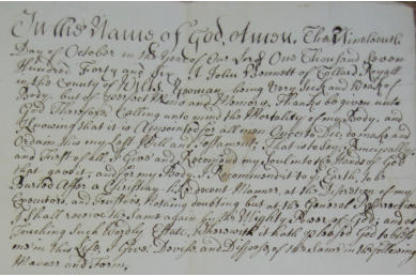 In the Name of God, Amen, The Nineteenth
Day of October in the Year of Our Lord One Thousand Seven
Hundred Forty and I John Bennett of Collard Royall
in the County of Wilts Yeoman, being Very Sick and Weak of
Body, but of perfect Mind and Memory, Thanks be given unto
God Therefore, Calling unto mind the Mortality of my Body, and
Knowing that it is Appointed for all men Once to Die, do make and
Ordain this my Last Will and Testament; That is to say, Principally
and First of all, I Give and Recommend my Soul into the Hands of God
that gave it; and for my Body, I Recommend it to the Earth, to be
Buried After a Christian like decent Manner, at the Discretion of my
Executors, nothing doubting but at the General Resurrection
I shall receive the Same again by the Mighty Power of God; and as
Touching Such Worldly Estate, Wherewith it hath pleased God to bless
me in this Life, I Give, Devise and Dispose of the Same in the following
Manner and Form.